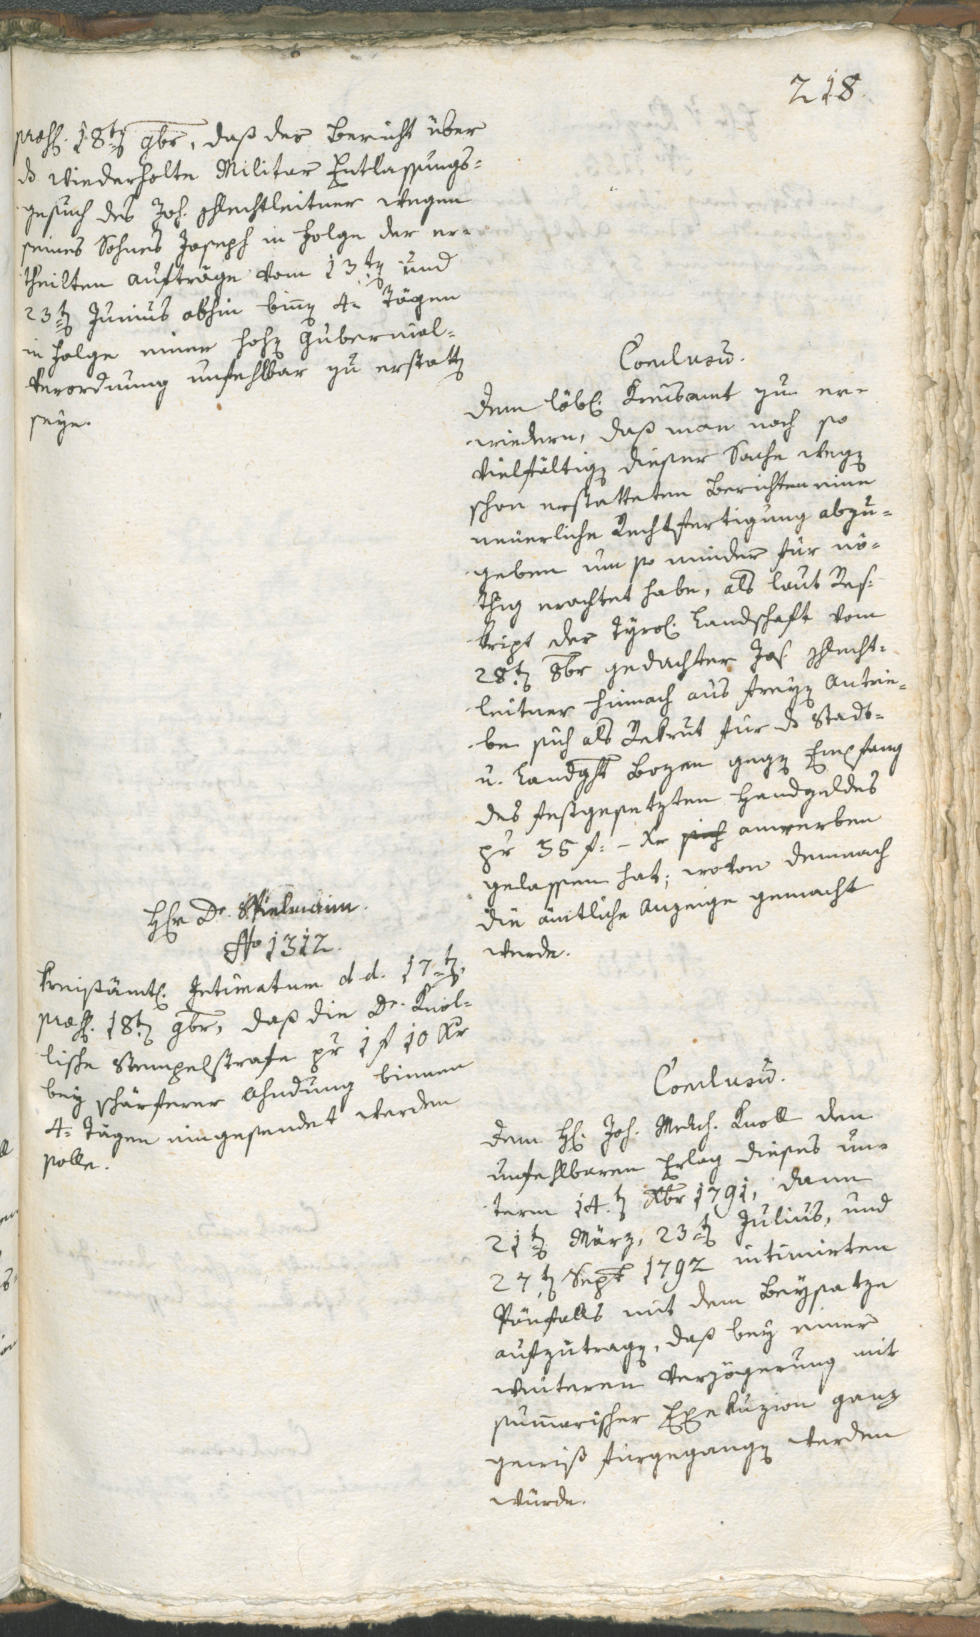 218.
præs. 18ten 9br, daß der Bericht über
das wiederholte Militar Entlassungs-
gesuch des Jos. Schlechtleitner wegen
seines Sohnes Joseph in Folge der er-
theilten Aufträge vom 13ten und
23ten Junius abhin binnen 4. Tägen
in Folge einer hohen Gubernial-
Verordnung unfehlbar zu erstatten
seye.
Conclusum.
Dem löbl. Kreisamt zu er-
wiedern, daß man nach so
vielfältig dieser Sache wegen
schon erstatteten Berichten eine
neuerliche Rechtfertigung abzu-
geben um so minder für nö-
thig erachtet habe, als laut Res-
kript der Tyrol. Landschaft vom
28ten 8br gedachter Jos. Schlecht-
leitner hinnach aus freyen Antrie-
be sich als Rekrut für das Stadt-
u. Landght Bozen gegen Empfang
des festgesetzten Handgeldes
pr 35 f. – Xr sich anwerben
gelassen hat; wovon demnach
die ämtliche Anzeige gemacht
werde.
Hr Dr.
No 1312.
Kreisämtl. Intimatum d. d. 17ten,
præs. 18ten 9br, daß die Dr. Knol-
lische Stempelstrafe pr 1 f 10 Xr
bey schärferer Ahndung binnen
4. Tägen eingesendet werden
solle.
Conclusum.
Dem H. Joh. Melch. Knoll den
unfehlbaren Erlag dieses un-
term 14ten Xbr 1791, dann
21ten März, 23ten Julius, und
27ten Sept 1792 intimirten
Pönfalls mit dem Beysatze
aufzutragen, daß bey einer
weiteren Verzögerung mit
summarischer Exekuzion ganz
gewiß fürgegangen werden
würde.